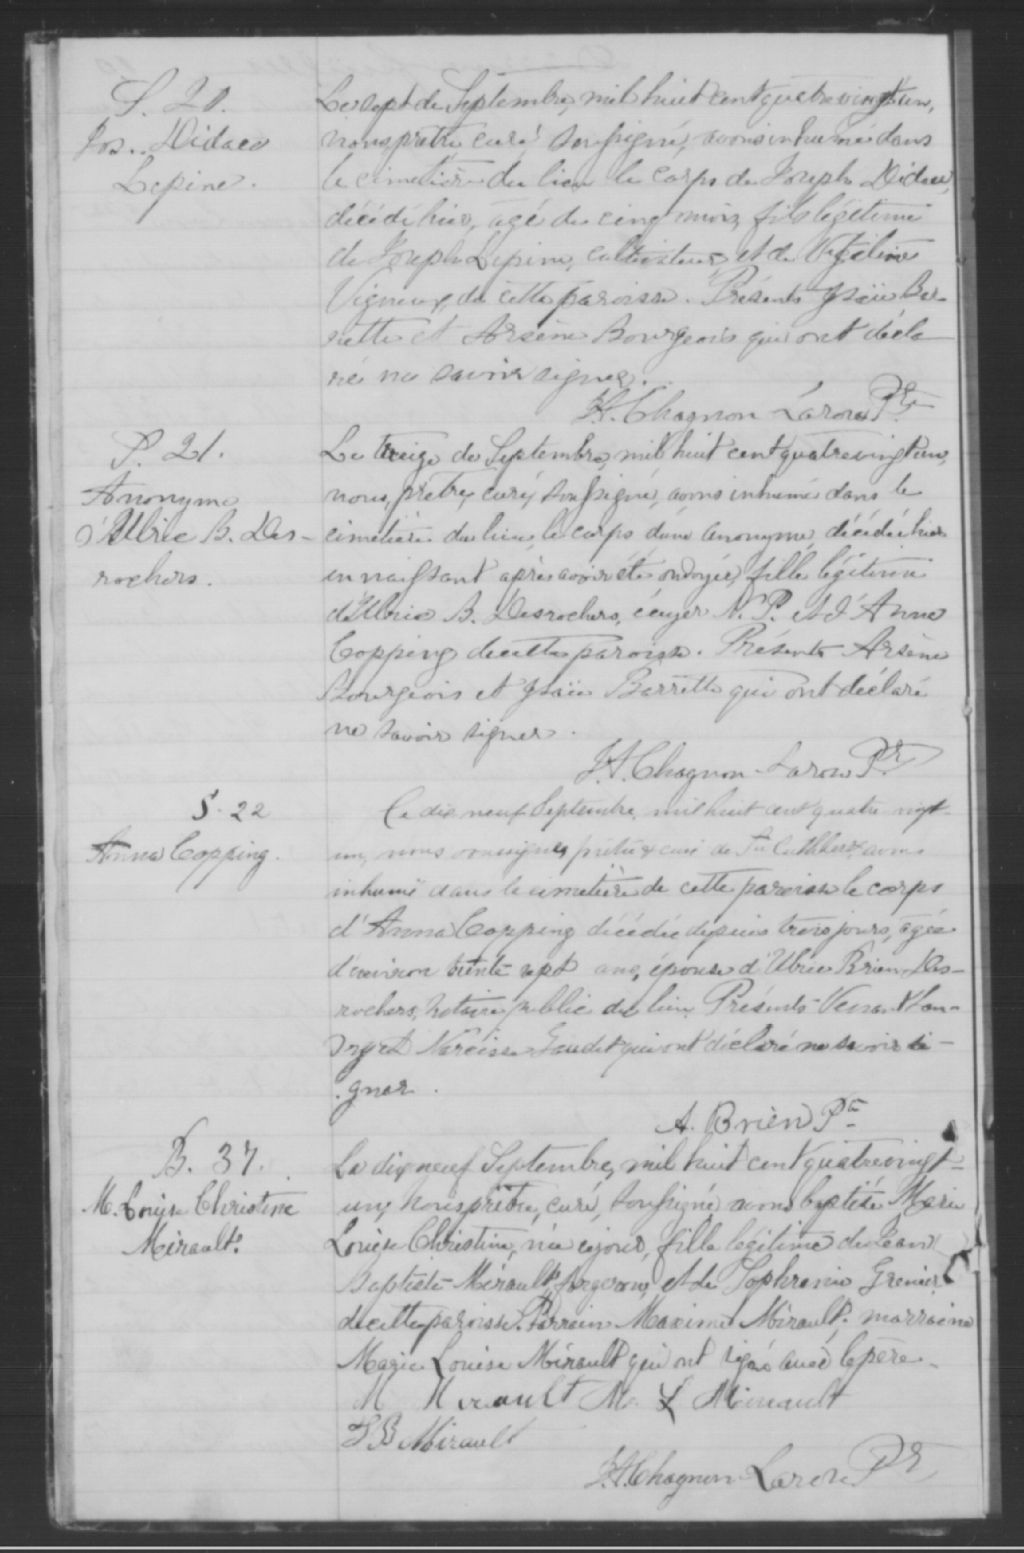 S. 20.
Jos. Didace
Lepine.
Le sept de Septembre, mil huit cent quatrevingt un,
nous prêtre curé soussigné, avons inhumé dans
le cimetière du lieu le corps de Joseph Didace,
décédé hier, agé de cinq mois, fils légitime
de Joseph Lepine, cultivateur, et de
Vigneux, de cette paroisse. Présents Isaïe Bar-
rette et Arsène Bourgeois qui ont décla
ré ne savoir signer.
J. A. Chagnon Larose Ptre
S. 21.
Anonyme
d'Ulric B. Des-
rochers.
Le treize de Septembre, mil huit cent quatrevingt un,
nous, prêtre, curé, soussigné, avons inhumé dans le
cimetière du lieu, le corps d'une anonyme, décédée hier
en naissant après avoir été ondoyée, fille légitime
d'Ulric B. Desrochers, écuyer N. P. et d'Anna
Copping de cette paroisse. Présents Arsène
Bourgeois et Isaïe Barrette qui ont déclaré
ne savoir signer.
J. A. Chagnon-Larose Ptr
S. 22
Anna Copping.
Ce dix neuf Septembre, mil huit cent quatre vingt-
un, nous soussigné, prêtre & curé de St Cuthbert, avons
inhumé dans le cimetière de cette paroisse le corps
d'Anna Copping décédée depuis trois jours, agée
d'environ trente sept ans, épouse d'Ulric Brien Des-
rochers, Notaire public du lieu. Présents
Narcisse Gaudet qui ont déclaré ne savoir si-
gner.
A. Brien Ptre
B. 37.
M. Louise Christine
Mirault.
Le dix neuf Septembre, mil huit cent quatrevingt-
un, nous prêtre, curé, soussigné avons baptisé Marie
Louise Christine, née ce jour, fille légitime de Jean
Baptiste Mirault, forgeron, et de Sophronie Grenier
de cette paroisse. Parrain Maxime Mirault: marraine
Marie Louise Mirault qui ont signé avec le père.
M Mirault M. L Mirault
J B Mirault
J. A. Chagnon Larose Ptr